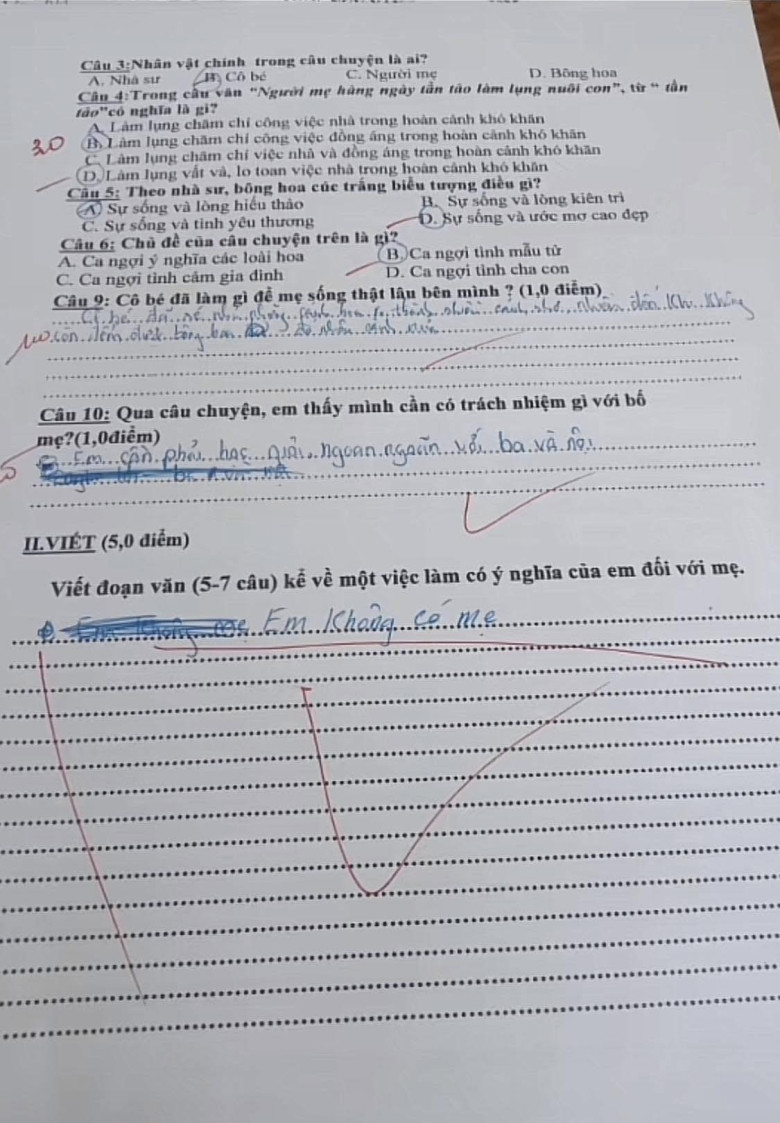 Câu 3:Nhân vật chính trong câu chuyện là ai?
A. Nhà sư B. Cô bé C. Người mẹ D. Bông hoa
Câu 4:Trong câu văn “Người mẹ hàng ngày tần tảo làm lụng nuôi con”, từ “ tần
tảo”có nghĩa là gì?
A. Làm lụng chăm chỉ công việc nhà trong hoàn cảnh khó khăn
B. Làm lụng chăm chỉ công việc đồng áng trong hoàn cảnh khó khăn
C. Làm lụng chăm chỉ việc nhà và đồng áng trong hoàn cảnh khó khăn
D. Làm lụng vất vả, lo toan việc nhà trong hoàn cảnh khó khăn
Câu 5: Theo nhà sư, bông hoa cúc trắng biểu tượng điều gì?
A. Sự sống và lòng hiếu thảo B. Sự sống và lòng kiên trì
C. Sự sống và tình yêu thương D. Sự sống và ước mơ cao đẹp
Câu 6: Chủ đề của câu chuyện trên là gì?
A. Ca ngợi ý nghĩa các loài hoa B. Ca ngợi tình mẫu tử
C. Ca ngợi tình cảm gia đình D. Ca ngợi tình cha con
Câu 9: Cô bé đã làm gì để mẹ sống thật lâu bên mình ? (1,0 điểm)
bé đã xé nhỏ cánh hoa thành nhiều cánh nhỏ đến khi không
còn đếm được bông hoa
Câu 10: Qua câu chuyện, em thấy mình cần có trách nhiệm gì với bố
mẹ?(1,0điểm)
Em cần phải học giỏi ngoan ngoãn với ba và nội
II.VIẾT (5,0 điểm)
Viết đoạn văn (5-7 câu) kể về một việc làm có ý nghĩa của em đối với mẹ.
Em không có mẹ